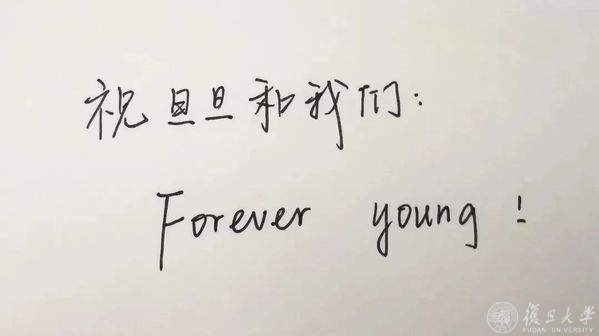 祝旦旦和我们：
Forever young！
復旦大學
FUDAN UNIVERSITY